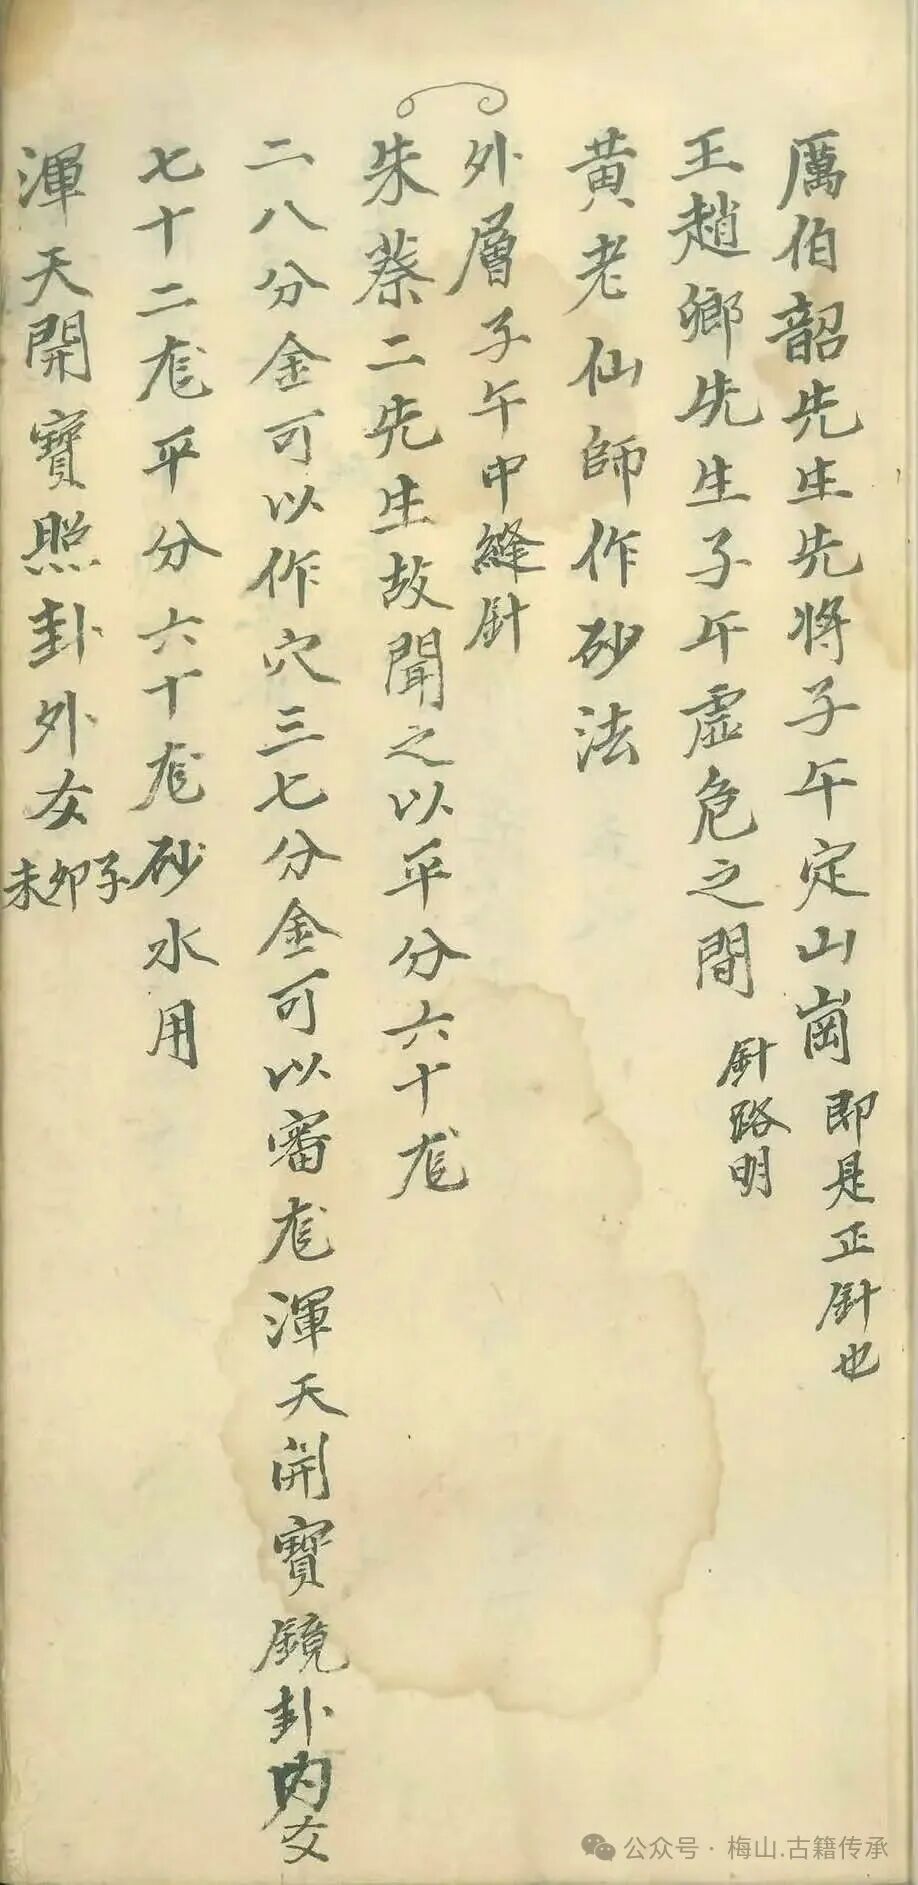 厲伯韶先生先将子午定山崗 即是正針也
王趙鄉先生子午虛危之間 針路明
黃老仙師作砂法
外層子午中縫針
朱蔡二先生故聞之以平分六十龙
二八分金可以作穴三七分金可以審龙渾天開寶鏡卦内交
七十二龙平分六十龙砂水用
渾天開寶照卦外 子卯未
公众号·梅山.古籍传承